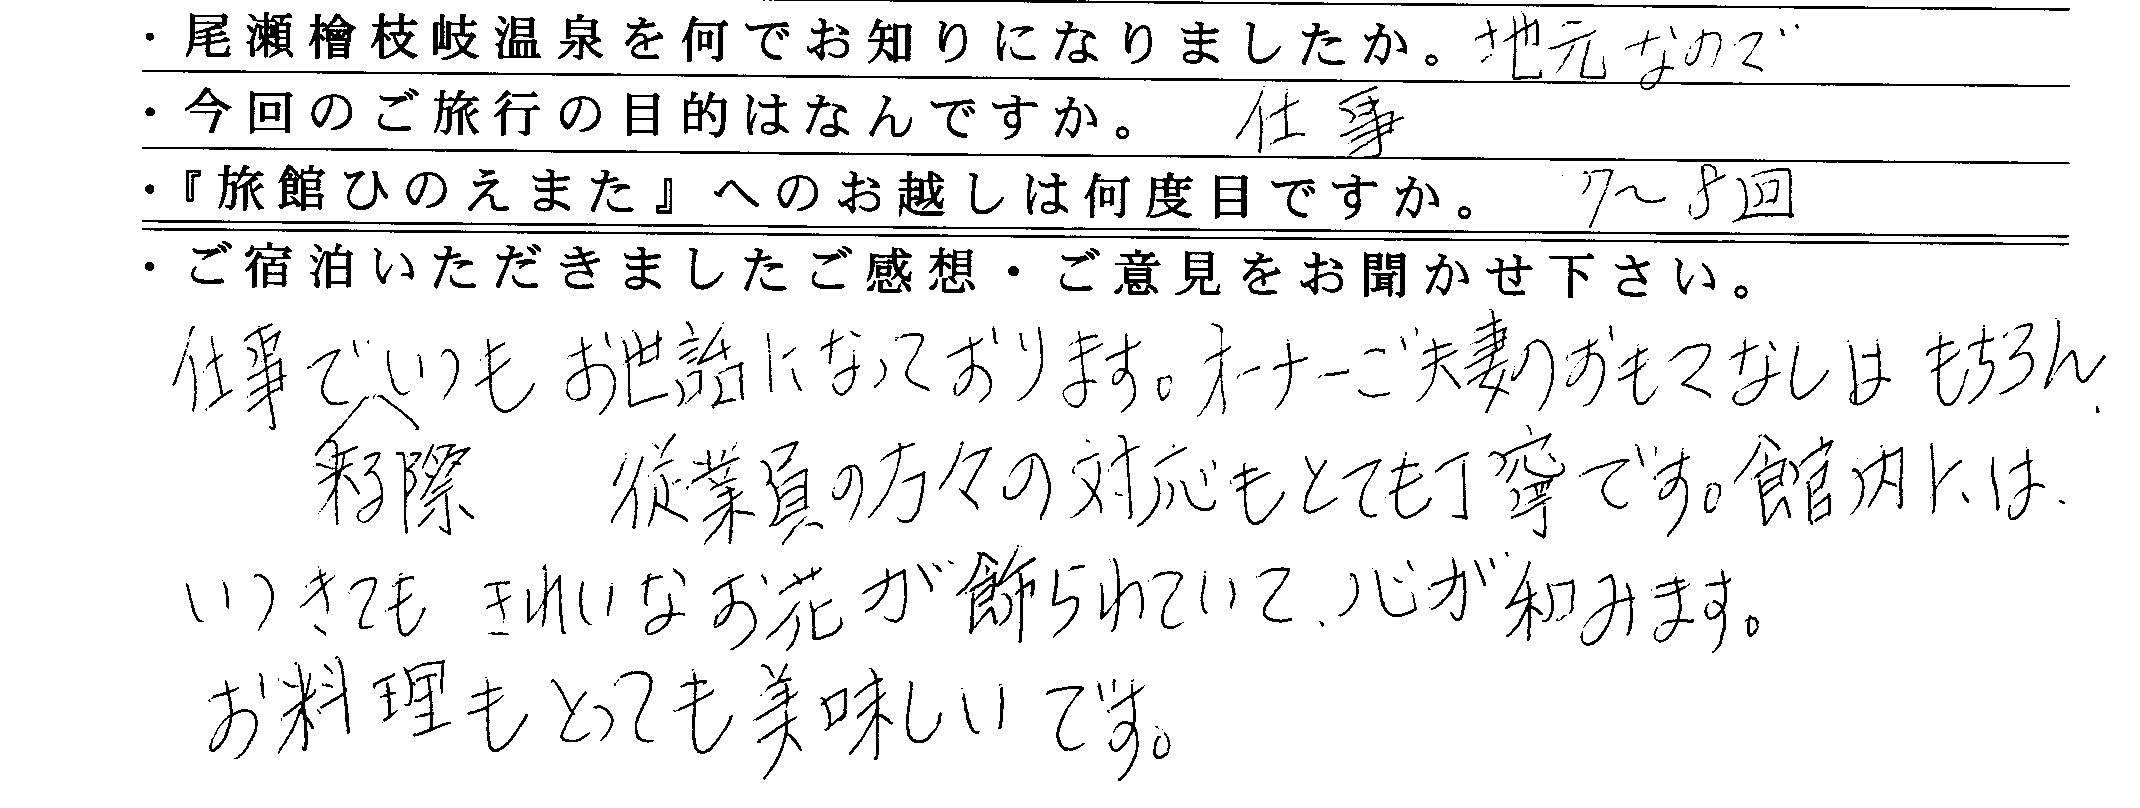 ・尾瀬檜枝岐温泉を何でお知りになりましたか。地元なので
・今回のご旅行の目的はなんですか。 仕事
・『旅館ひのえまた』へのお越しは何度目ですか。 7〜8回
・ご宿泊いただきましたご感想・ご意見をお聞かせ下さい。
仕事でいつもお世話になっております。オーナーご夫妻のおもてなしはもちろん、
来る際 従業員の方々の対応もとても丁寧です。館内には、
いつきてもきれいなお花が飾られていて、心が和みます。
お料理もとっても美味しいです。